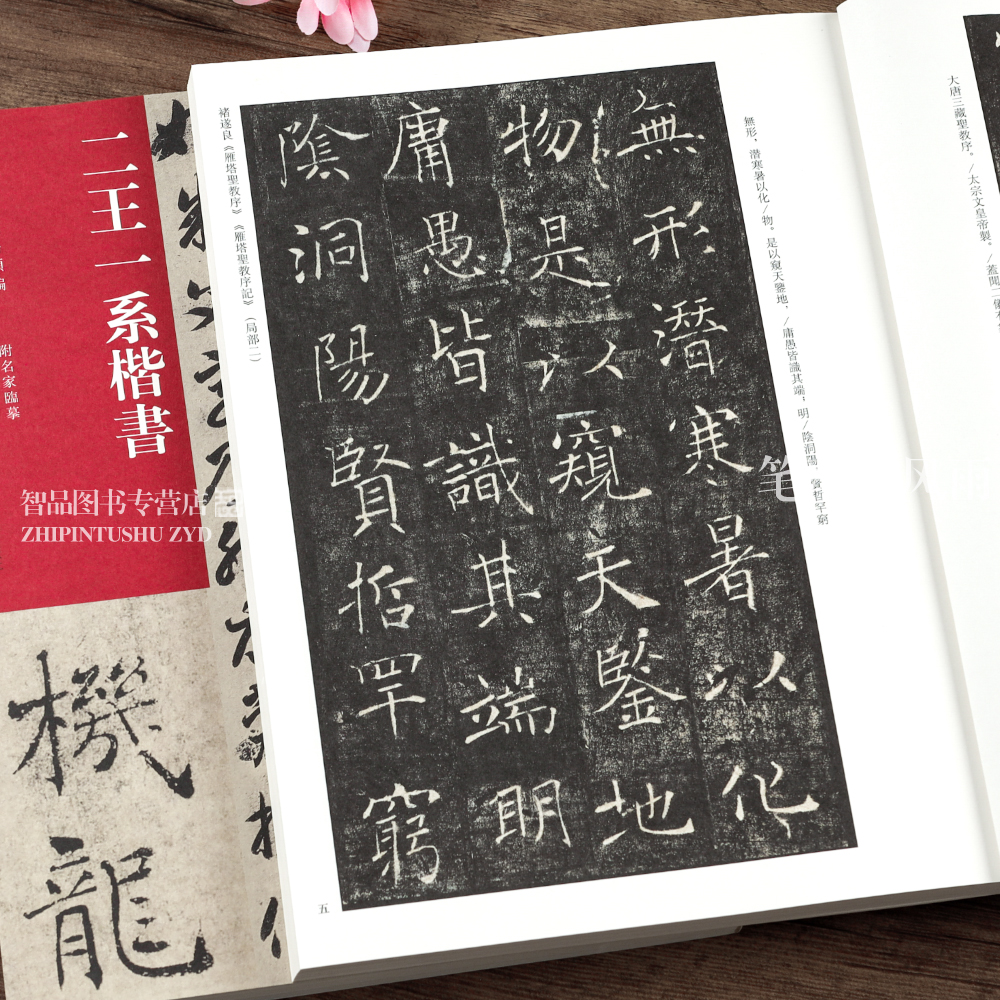 二王一系楷書
附名家臨摹
機龍
智品图书专营店
ZHIPINTUSHU ZYD
褚遂良《雁塔聖教序》《雁塔聖教序記》（局部二）
無形潛寒暑以化
物是以窺天鑒地
庸愚皆識其端明
陰洞陽賢哲罕窮
無形，潛寒暑以化/物。是以窺天鑒地，/庸愚皆識其端；明/陰洞陽，賢哲罕窮
五
大唐三藏聖教序。/太宗文皇帝製。/蓋聞二儀有
笔